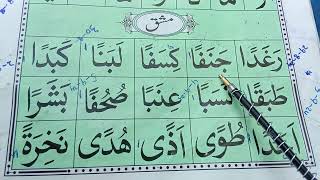 مشق
رَغَدًا جَنَفًا كِسَفًا لَبَنًا كَبَدًا
طَبَقًا نَسَبًا عِنَبًا صُحُفًا بَشَرًا
طُوًى اَذًى هُدًى نَخِرَةً